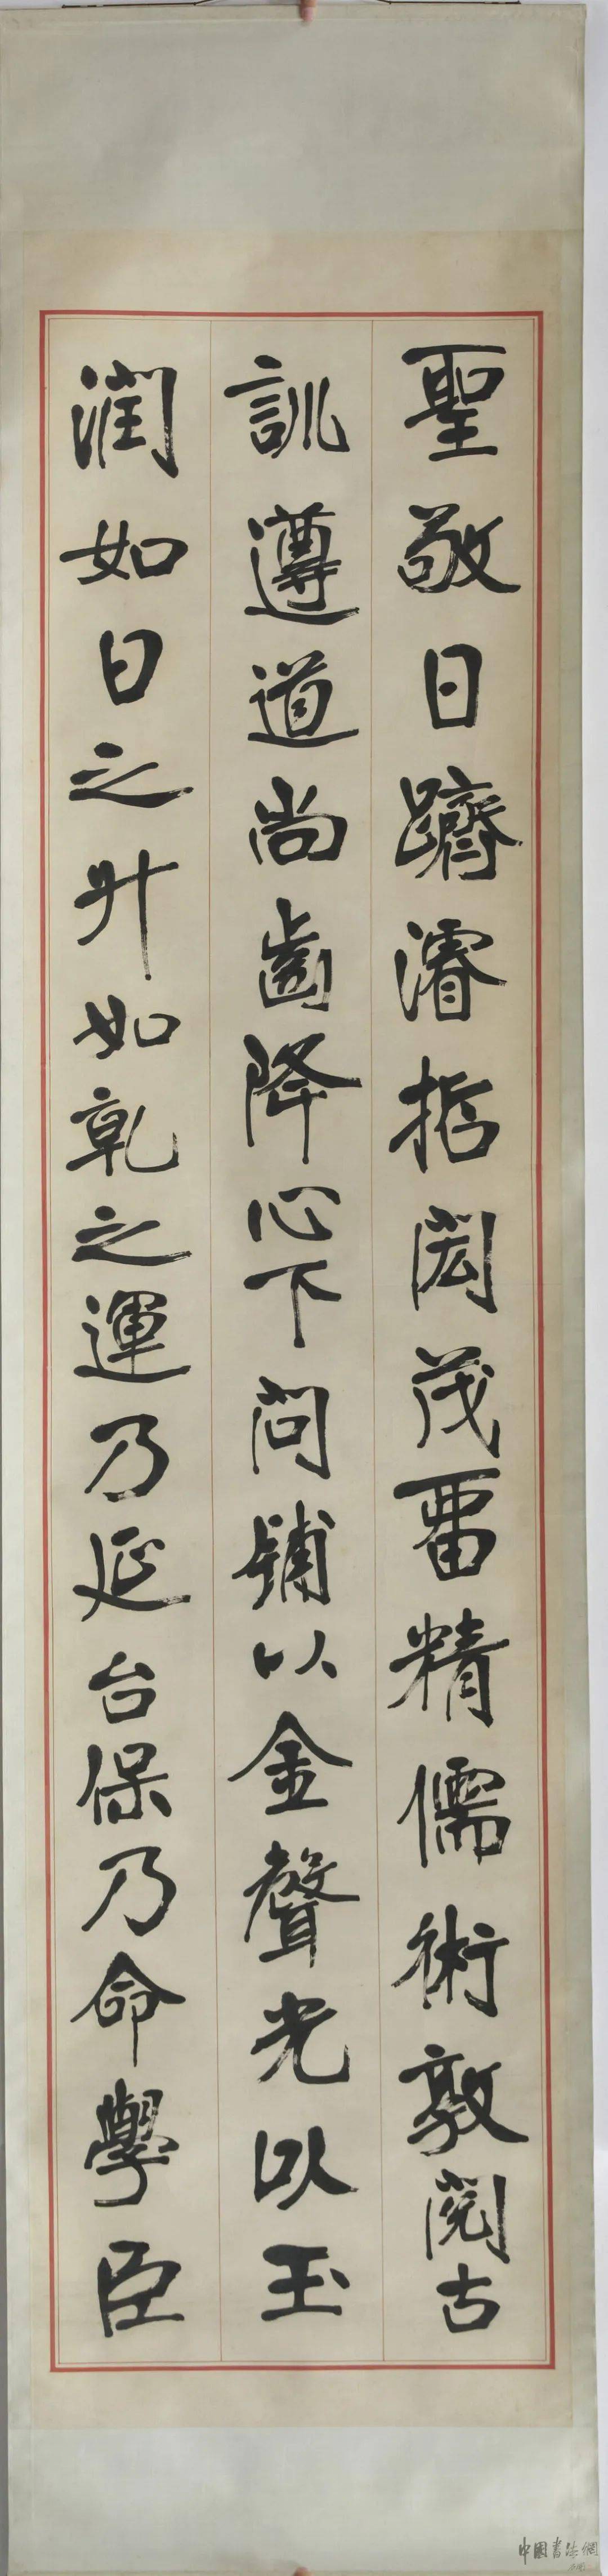 聖敬日躋濬哲閎茂畱精儒術敦閱古
訓遵道尚齒降心下問鋪以金聲光以玉
潤如日之升如乾之運乃延台保乃命學臣
中国书法网